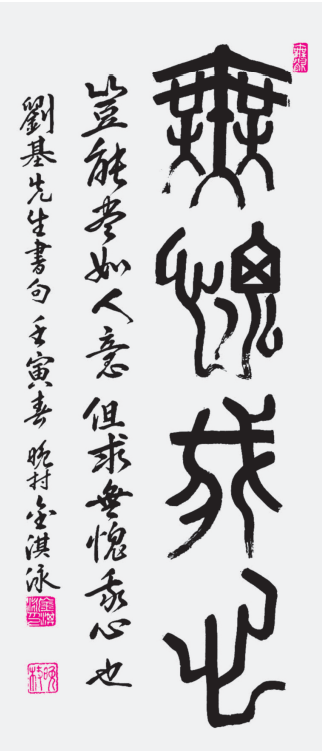 無愧我心
豈能盡如人意 但求無愧我心也
劉基先生書句 壬寅春 晚村 金淇泳